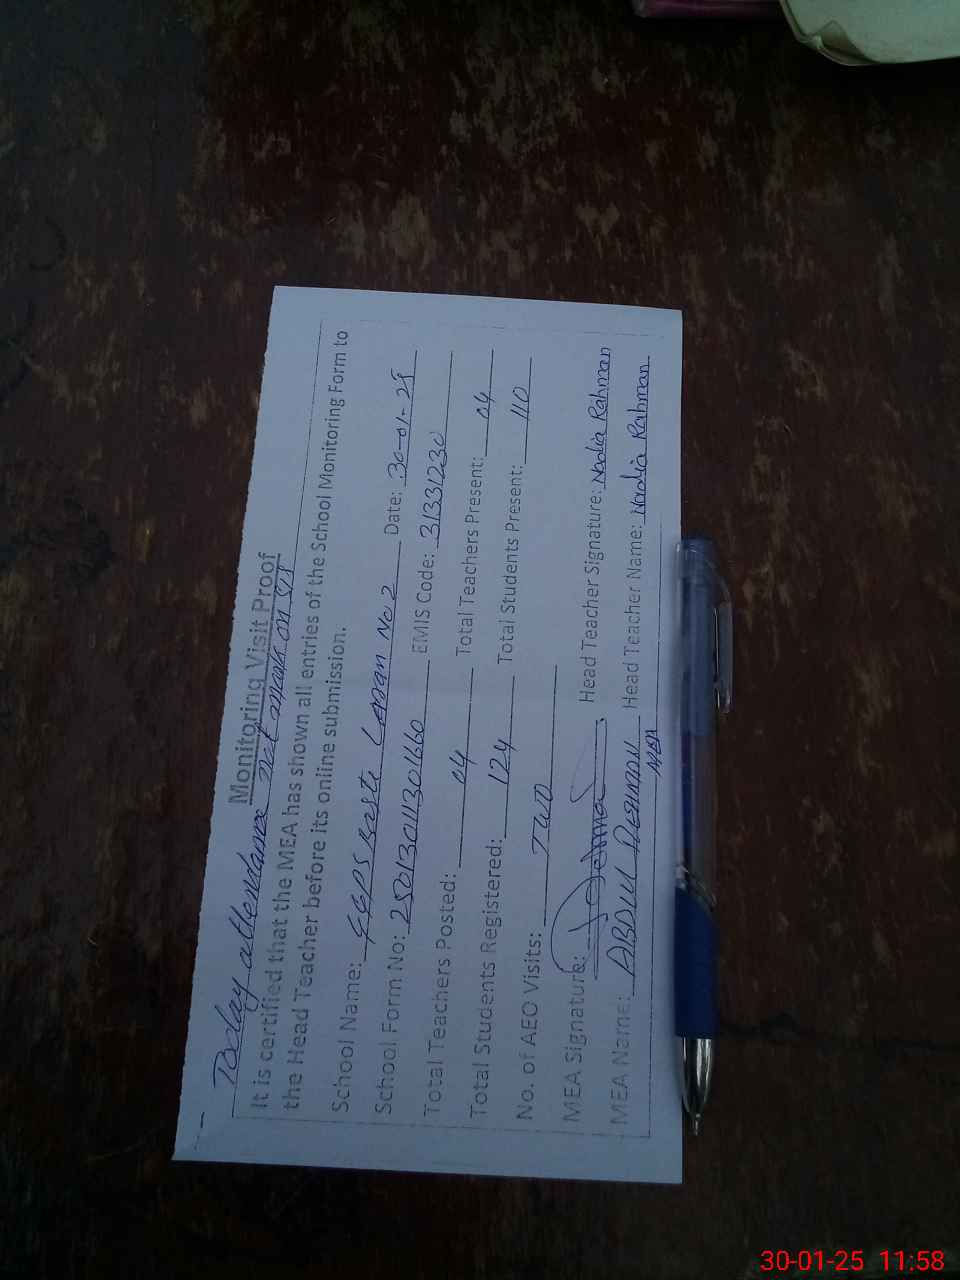 Monitoring Visit Proof
Today attendance not mark on SIS
It is certified that the MEA has shown all entries of the School Monitoring Form to
the Head Teacher before its online submission.
School Name: GGPS Basti Date: 30-01-25
School Form No: 250130113301660 EMIS Code: 31331230
Total Teachers Posted: 04 Total Teachers Present: 04
Total Students Registered: 124 Total Students Present: 110
No. of AEO Visits: TWO
MEA Signature: Head Teacher Signature: Nadia Rahman
MEA Name: ABDUL REHMAN Head Teacher Name: Nadia Rahman
MEA
30-01-25 11:58